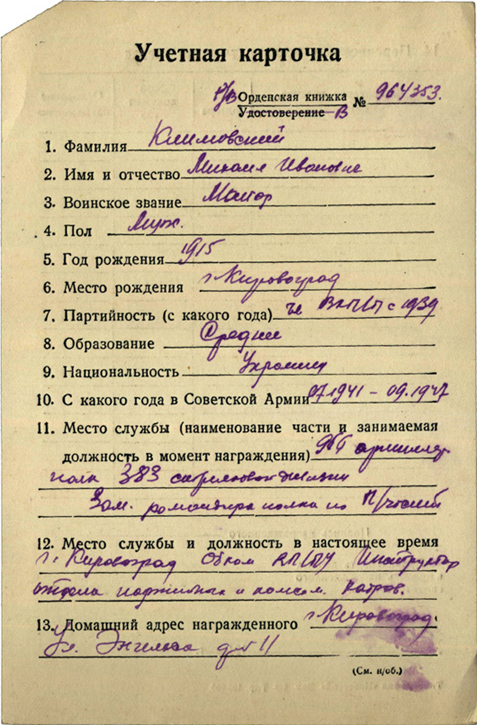 Учетная карточка
Р/В Орденская книжка
Удостоверение В № 964353.
1. Фамилия Климовский
2. Имя и отчество Михаил Иванович
3. Воинское звание Майор
4. Пол Муж.
5. Год рождения 1915
6. Место рождения г. Кировоград
7. Партийность (с какого года) ЧЛ ВКП/б/ с 1939
8. Образование Среднее
9. Национальность Украинец
10. С какого года в Советской Армии 07.1941 - 09.1947
11. Место службы (наименование части и занимаемая
должность в момент награждения) артиллер.
полк 383 стрелковой дивизии
Зам. командира полка по П/части
12. Место службы и должность в настоящее время
г. Кировоград Обком КП/б/У Инструктор
отдела партийных и комсом. кадров.
13. Домашний адрес награжденного г. Кировоград
Ул. Энгельса д. № 11
(См. н/об.)